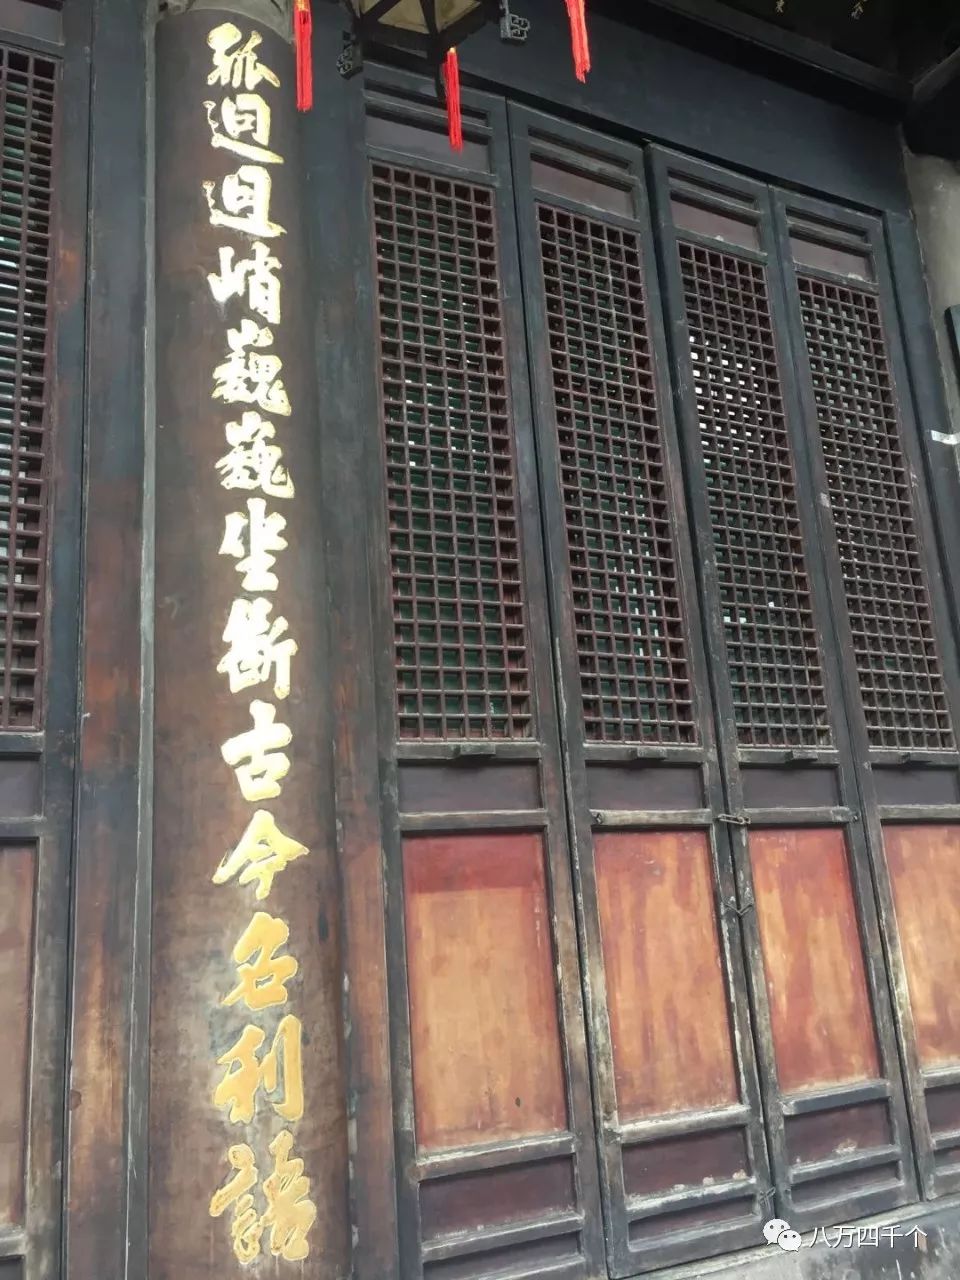 孤迥迥峭巍巍坐斷古今名利語
八万四千个